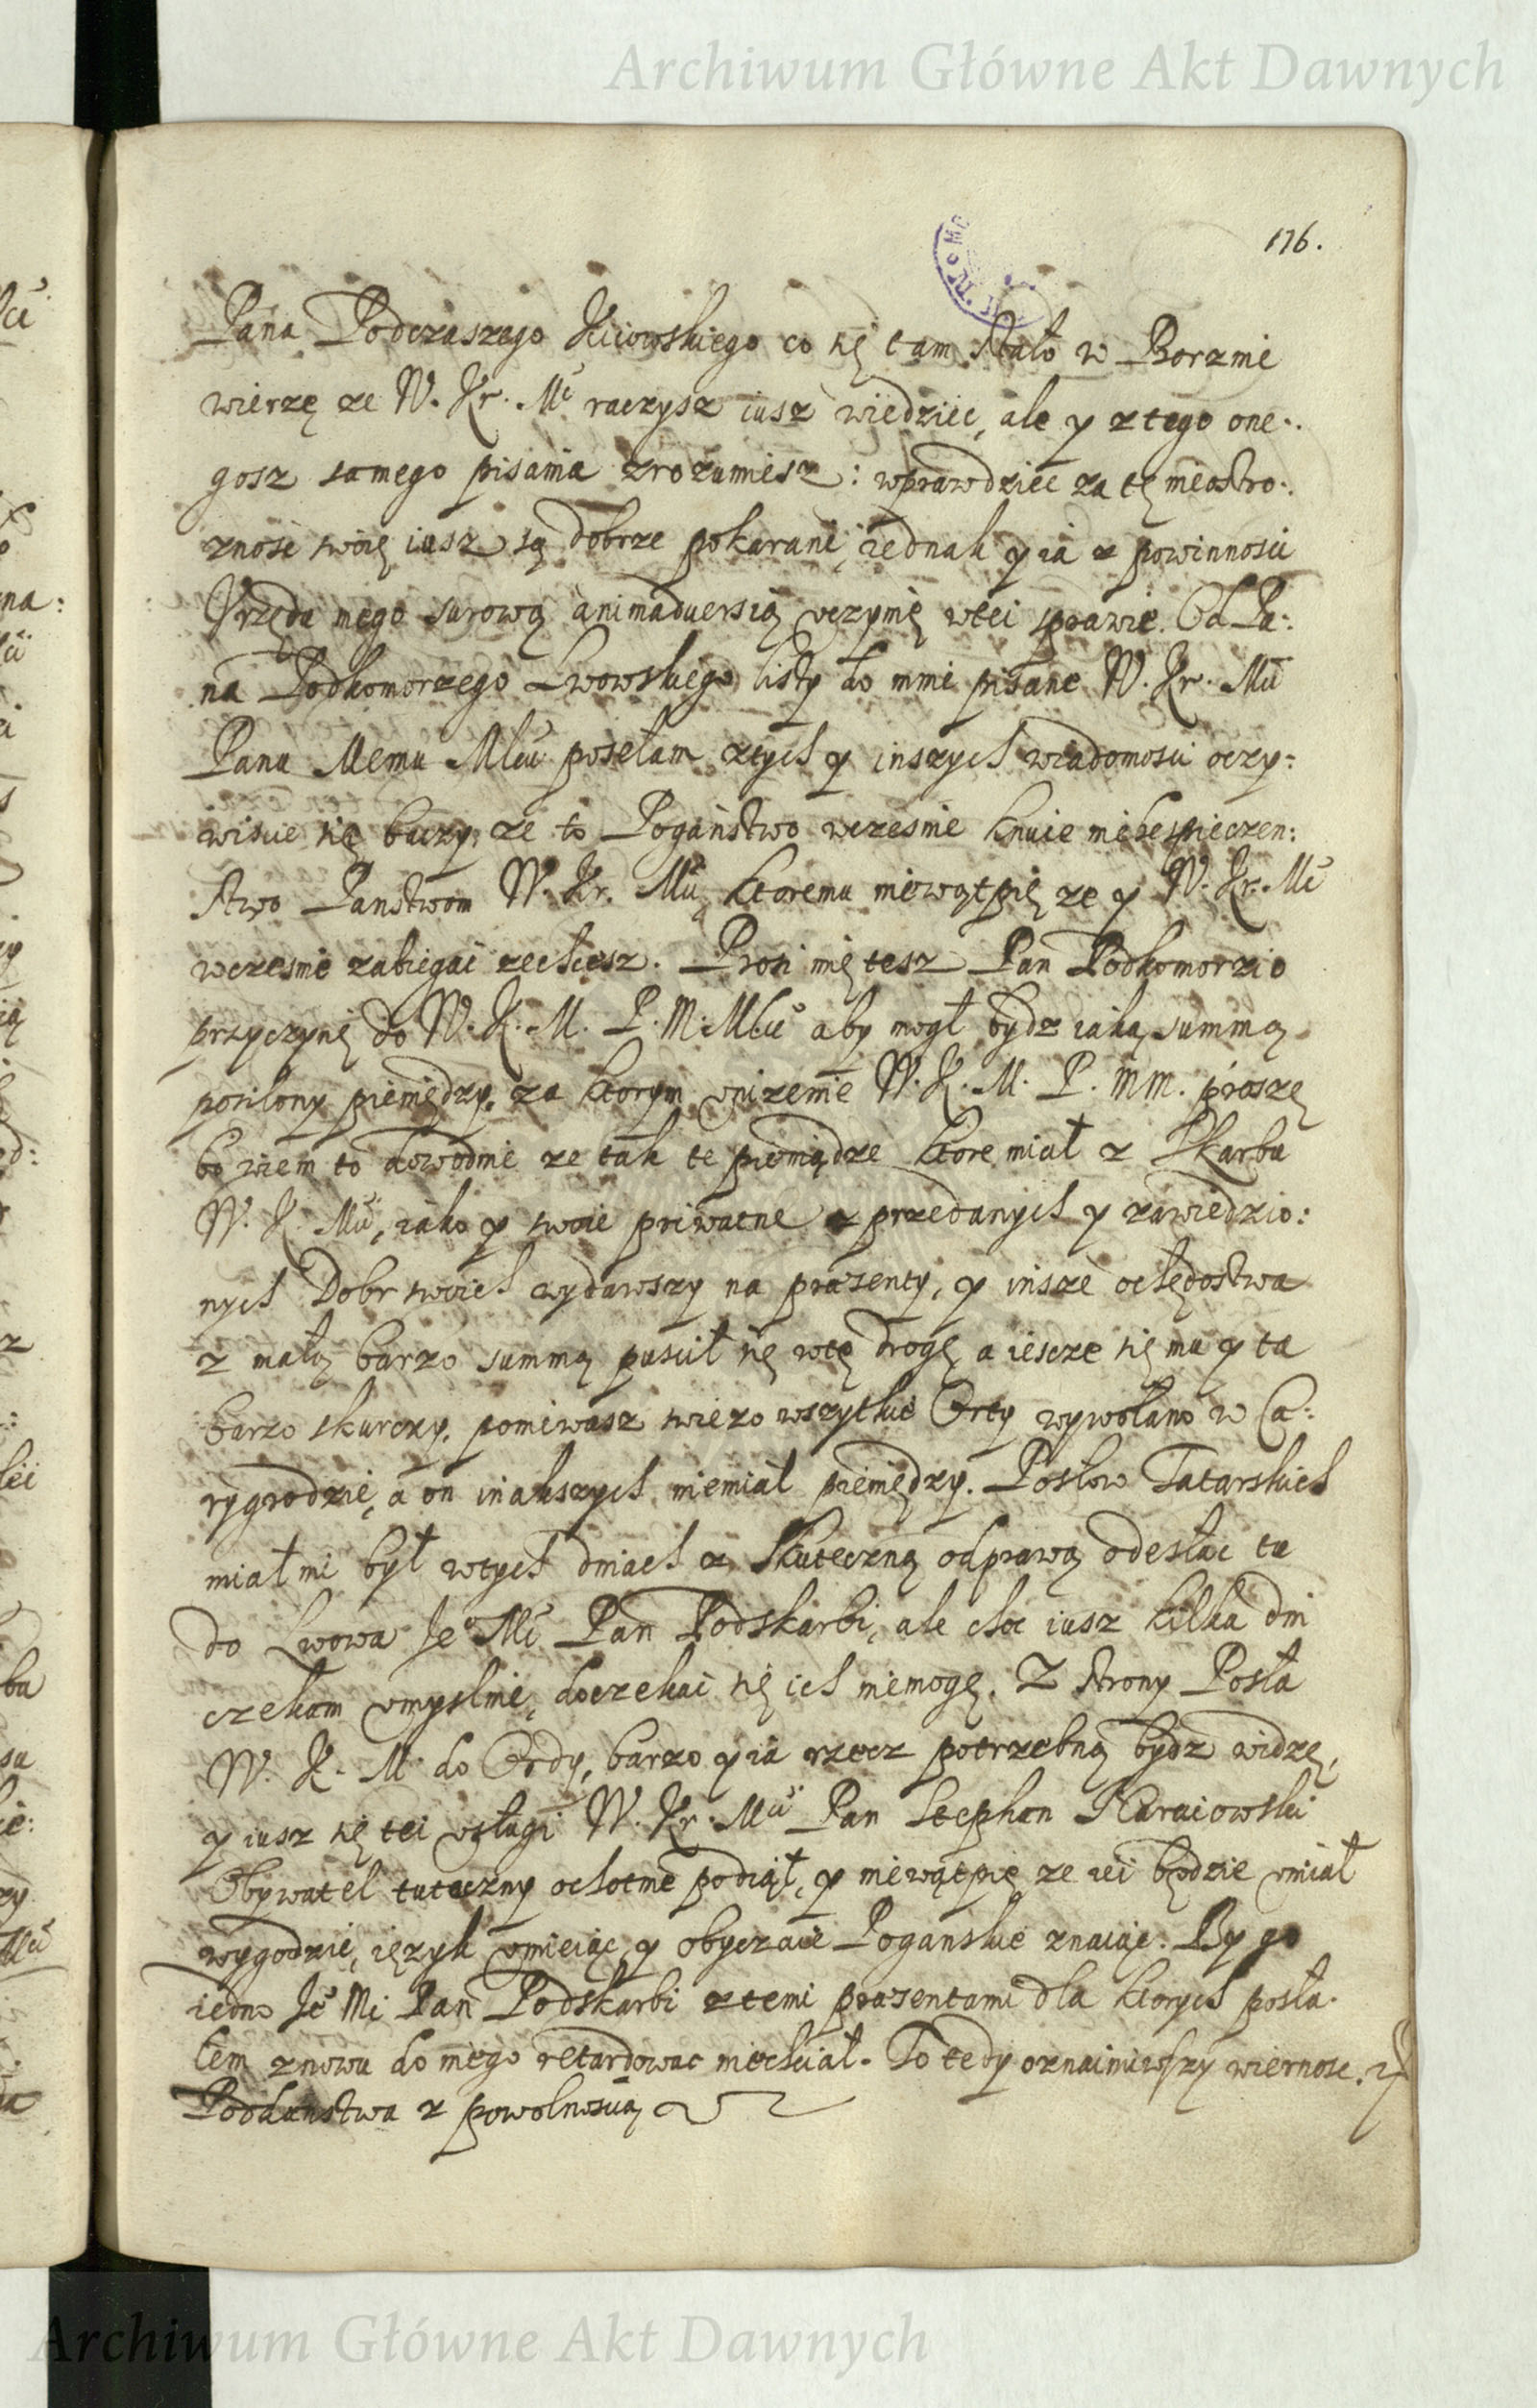 Archiwum Główne Akt Dawnych
176.
Pana Podczaszego Kiiowskiego co się tam stało w Borzmie
wierzę ze W. Kr. Mć raczysz iusz wiedziec, ale y z tego one-
gosz samego pisania zrozumiesz: wprawdziec za tę nieostro-
znosc swoię iusz są dobrze pokarani, iednak y ia z powinnosci
Vrzędu mego surową animaduersią vczynię wtei sprawie. Od Pa:
na Podkomorzego Lwowskiego listy do mnie pisane W. Kr. Mci
Panu Memu Mciu posełam ztych y inszych wiadomosci oczy:
wiscie się baczy, ze to Pogaństwo wczesnie knuie niebespieczen:
stwo Panstwom W. Kr. Mci, ktoremu niewątpię ze y W. Kr. Mć
wczesnie zabiegac zechcesz. Prosi mię tesz Pan Podkomorzi o
przyczynę do W. K. M. P. M. Mciu aby mogł bydz iaką summą
posilony pieniędzy, za ktorym vnizenie W. K. M. P. M M. proszę
bo wiem to dowodnie ze tak te pieniądze ktore miał z Skarbu
W. K. Mci, iako y swoie priwatne z przedanych y zawiedzio:
nych Dobr swoich wydawszy na prazenty, y insze ochędostwa
z małą barzo summą puscił się wtę drogę, a iescze się mu y ta
barzo skurczy, poniewasz swiezo wszytkie Orty wywołano w Ca:
rygrodzie, a on inakszych niemiał pieniędzy. Posłow Tatarskich
miał mi był wtych dniach z skuteczną odprawą odesłac tu
do Lwowa Je Mć Pan Podskarbi, ale choc iusz kilka dni
czekam vmyslnie, doczekac się ich niemogę. Z strony Posła
W. K. M. do Ordy, barzo y ia rzecz potrzebną bydz widzę,
y iusz się tei vsługi W. Kr. Mci Pan Stephan Naraiowski
Obywatel tuteczny ochotnie podiął, y niewątpię ze iei będzie vmiał
wygodzic, ięzyk vmieiąc, y obyczaie Poganskie znaiąc. By go
iedno Je Mć Pan Podskarbi z temi prazentami dla ktorych posła-
łem znowu do niego retardowac niechciał. To tedy oznaimiwszy wiernosc
Poddanstwa z powolnoscią
Archiwum Główne Akt Dawnych